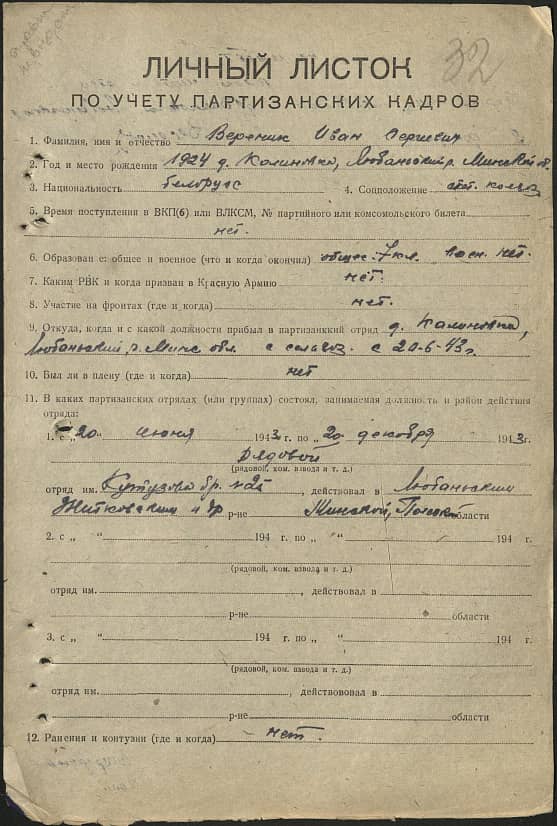 32
ЛИЧНЫЙ ЛИСТОК
ПО УЧЕТУ ПАРТИЗАНСКИХ КАДРОВ
1. Фамилия, имя и отчество Вереник Иван Сергеевич
2. Год и место рождения 1924 д. Калиновка, Любаньский р. Минской об.
3. Национальность белорус 4. Соцположение
5. Время поступления в ВКП(б) или ВЛКСМ, № партийного или комсомольского билета
нет.
6. Образован е: общее и военное (что и когда окончил) общее. 7 кл. воен. нет.
7. Каким РВК и когда призван в Красную Армию нет.
8. Участие на фронтах (где и когда) нет.
9. Откуда, когда и с какой должности прибыл в партизанккий отряд д. Калиновка,
Любаньский р. Минс обл. с с 20-6-43 г.
10. Был ли в плену (где и когда) нет
11. В каких партизанских отрялах (или группах) состоял, занимаемая должность и район действия
отряда:
1. с „20“ июня 1943 г. по „20 декабря 1943г.
Рядовой
(рядовой, ком. взвода и т. д.)
отряд им. Кутузова бр. №25, действовал в Любаньским
Житковским и др р-не Минской, Полес области
2. с „ “ 194 г. по „ “ 194 г.
(рядовой, ком. взвода и т. д.)
отряд им. , действовал в
р-не области
3. с „ “ 194 г. по „ “ 194 г.
(рядовой, ком. взвода и т. д.)
отряд им. , действововал в
р-не области
12. Ранения и контузии (где и когда) нет.